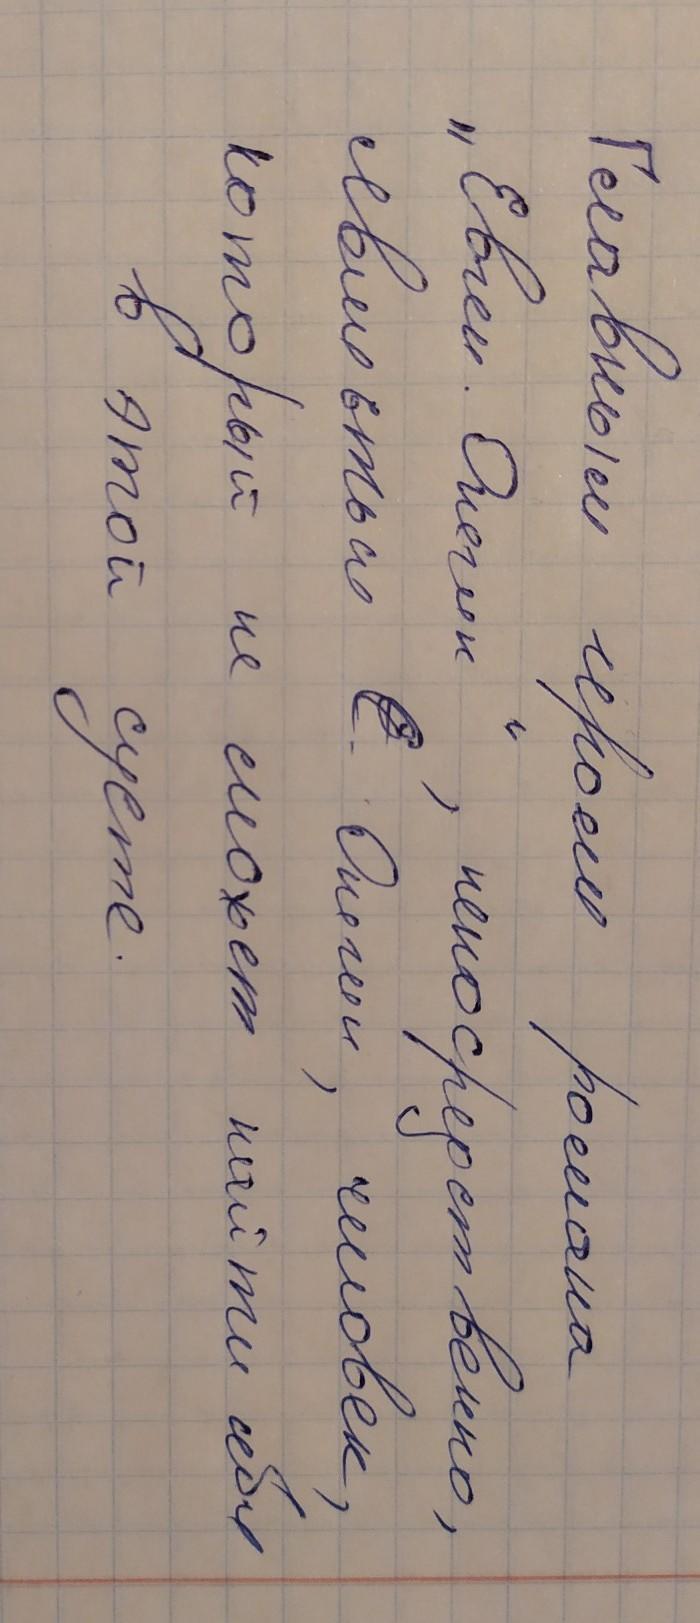 Главным героем романа
„Евген. Онегин“, непосредственно,
является Е. Онегин, человек,
который не сможет найти себя
в этой суете.